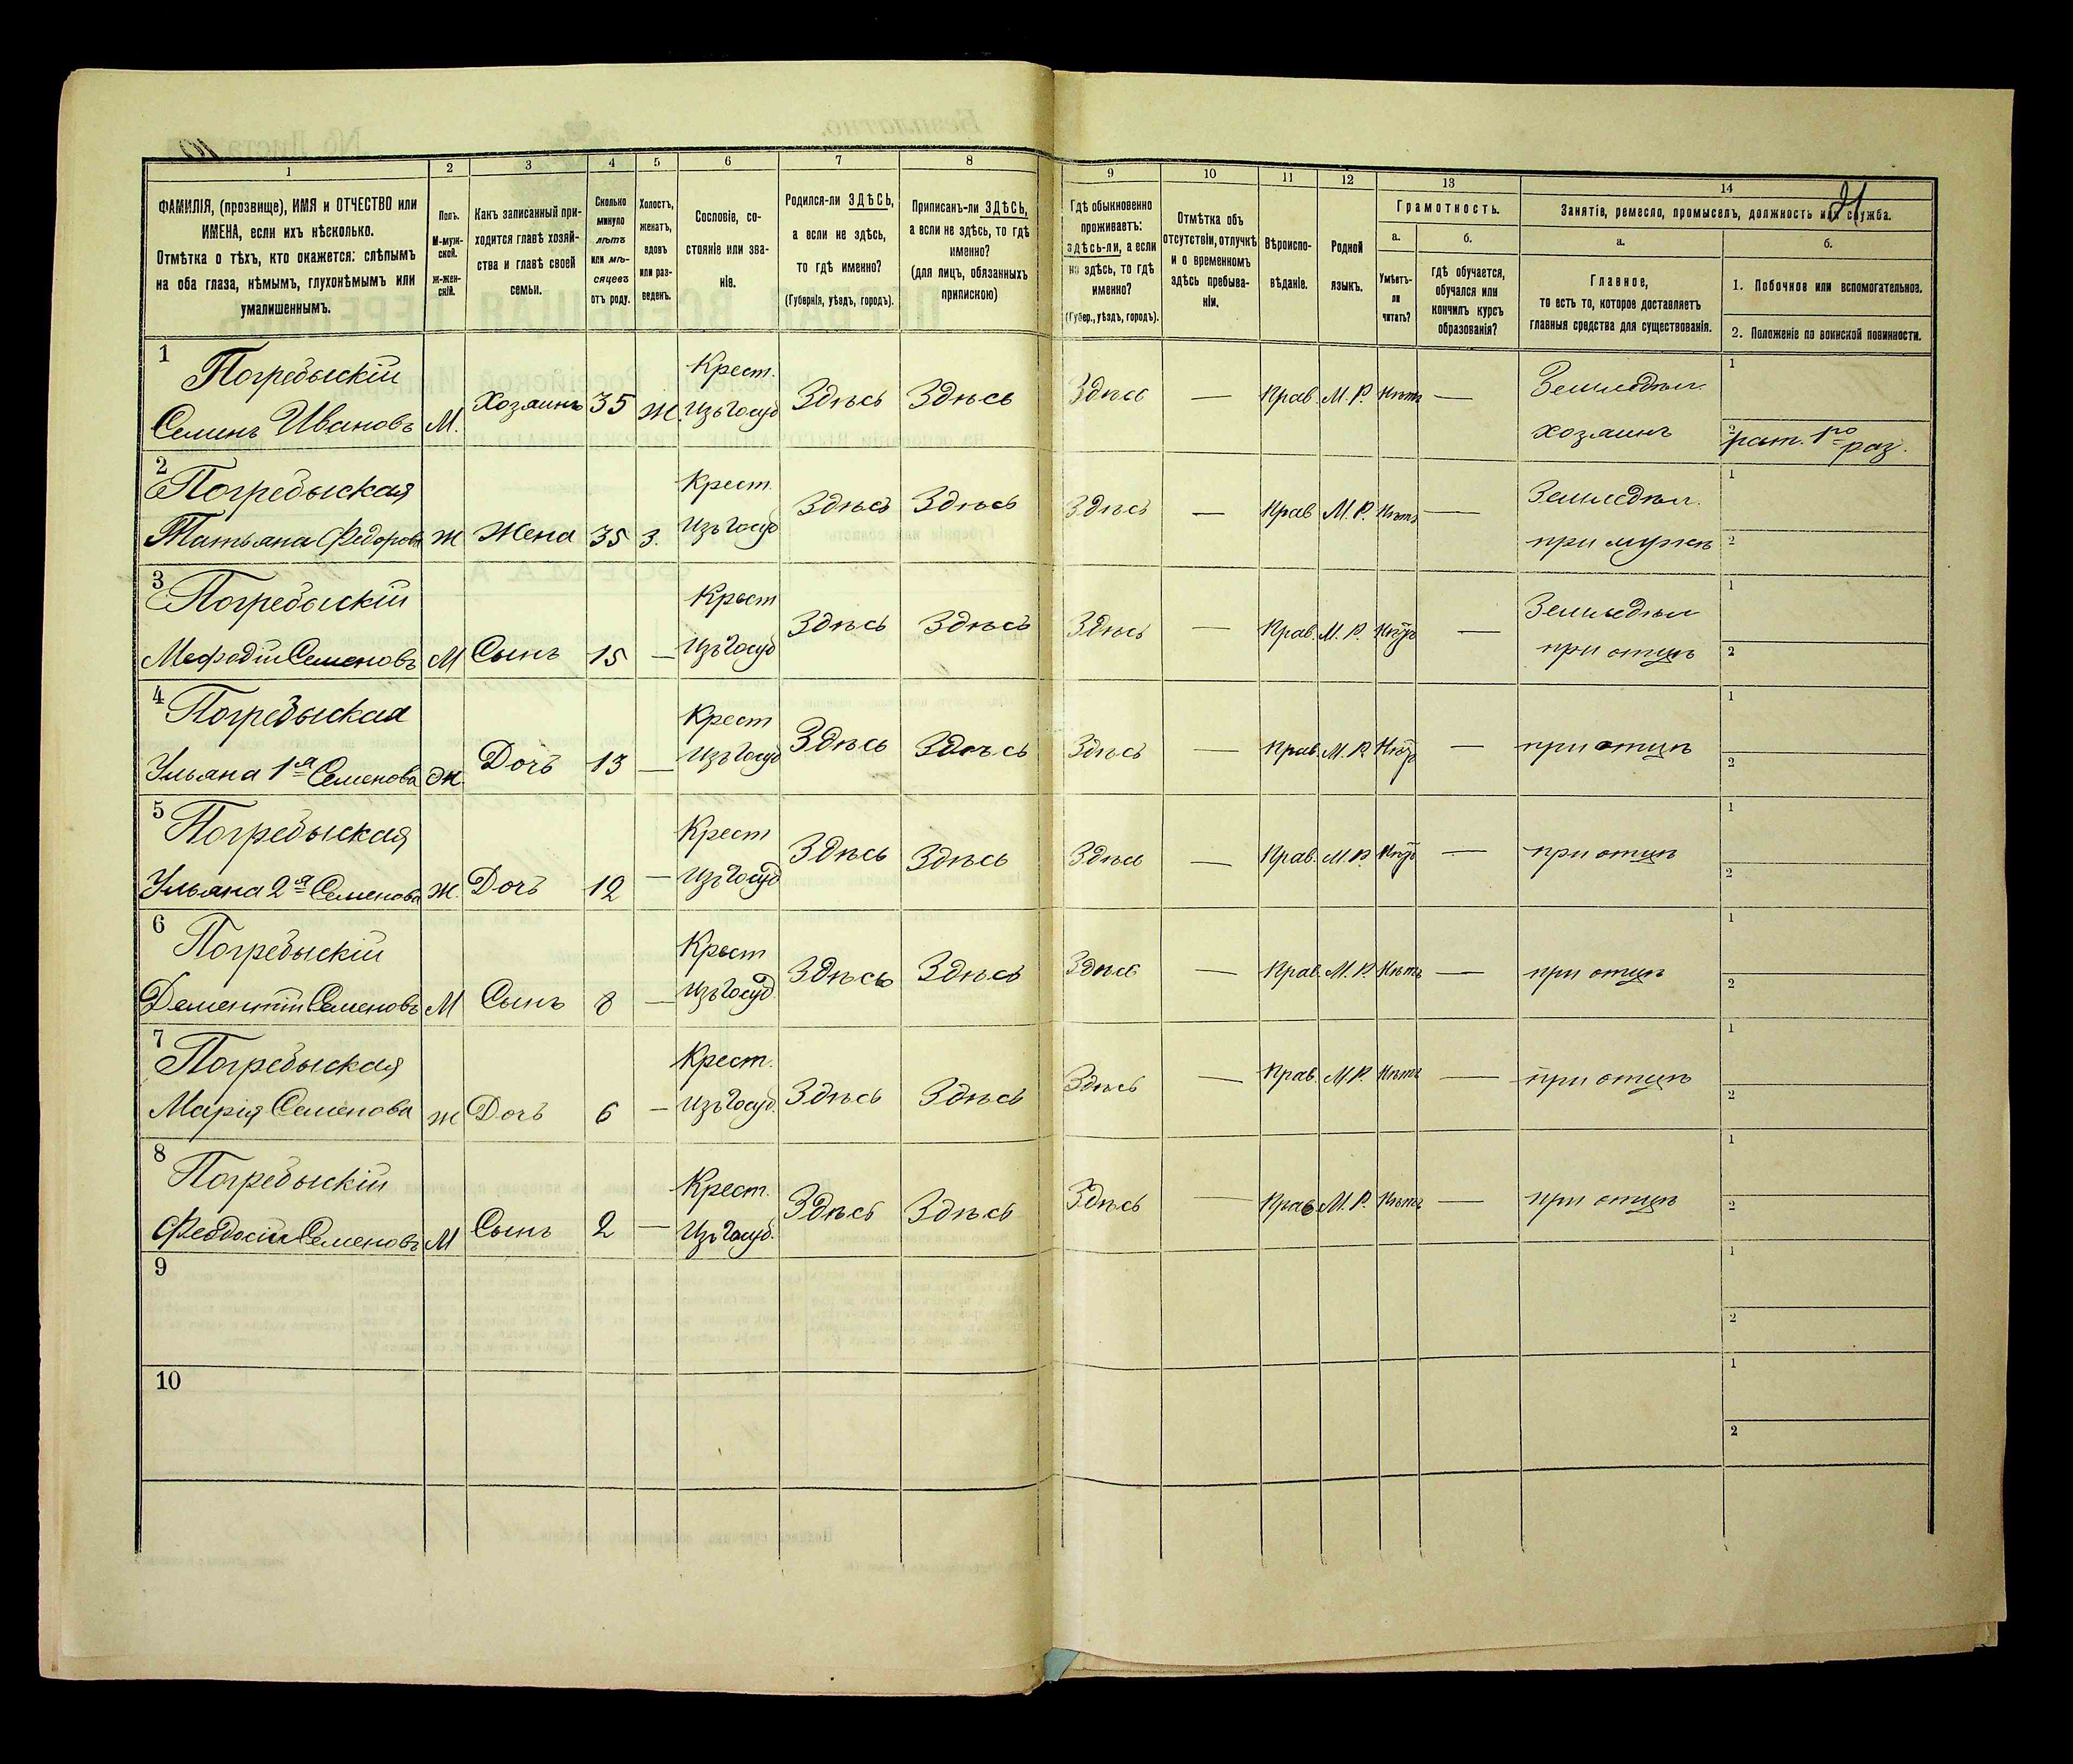 21
1 2 3 4 5 6 7 8 9 10 11 12 13 14
ФАМИЛІЯ, (прозвище), ИМЯ и ОТЧЕСТВО или
ИМЕНА, если ихъ нѣсколько.
Отмѣтка о тѣхъ, кто окажется: слѣпымъ
на оба глаза, нѣмымъ, глухонѣмымъ или
умалишеннымъ.
Полъ.
М-муж-
ской.
Ж-жен-
скій.
Какъ записанный при-
ходится главѣ хозяй-
ства и главѣ своей
семьи.
Сколько
минуло
лѣтъ
или мѣ-
сяцевъ
отъ роду.
Холостъ,
женатъ,
вдовъ
или раз-
веденъ.
Сословіе, со-
стояніе или зва-
ніе.
Родился-ли ЗДѢСЬ,
а если не здѣсь,
то гдѣ именно?
(Губернія, уѣздъ, городъ).
Приписанъ-ли ЗДѢСЬ,
а если не здѣсь, то гдѣ
именно?
(для лицъ, обязанныхъ
припискою)
Гдѣ обыкновенно
проживаетъ:
здѣсь-ли, а если
не здѣсь, то гдѣ
именно?
(Губер., уѣздъ, городъ).
Отмѣтка объ
отсутствіи, отлучкѣ
и о временномъ
здѣсь пребыва-
ніи.
Вѣроиспо-
вѣданіе.
Родной
языкъ.
Грамотность.
а.
Умѣетъ-
ли
читать?
б.
гдѣ обучается,
обучался или
кончилъ курсъ
образованія?
Занятіе, ремесло, промыселъ, должность или служба.
а.
Главное,
то есть то, которое доставляетъ
главныя средства для существованія.
б.
1. Побочное или вспомогательное.
2. Положеніе по воинской повинности.
1 Погребыскій Крест. Земледѣл. 1
Семенъ Ивановъ М. Хозяинъ 35 Ж. Изъ Госуд Здѣсь Здѣсь Здѣсь — Прав. М. Р. Нѣтъ — хозяинъ 2 рат. 1го раз.
2 Погребыская Крест. Земледѣл. 1
Татьяна Федорова Ж Жена 35 З. Изъ Госуд Здѣсь Здѣсь Здѣсь — Прав М. Р. Нѣтъ — при мужѣ 2
3 Погребыскій Крест Земледѣл 1
Мефодій Семеновъ М Сынъ 15 — Изъ Госуд Здѣсь Здѣсь Здѣсь — Прав. М. Р. — при отцѣ 2
4 Погребыская Крест 1
Ульяна 1я Семенова Ж. Дочь 13 — Изъ Госуд Здѣсь Здѣсь Здѣсь — Прав. М. Р. — при отцѣ 2
5 Погребыская Крест 1
Ульяна 2я Семенова Ж. Дочь 12 — Изъ Госуд Здѣсь Здѣсь Здѣсь — Прав. М. Р. — при отцѣ 2
6 Погребыскій Крест 1
Дементій Семеновъ М Сынъ 8 — Изъ Госуд Здѣсь Здѣсь Здѣсь — Прав. М. Р. Нѣтъ — при отцѣ 2
7 Погребыская Крест. 1
Марія Семенова Ж Дочь 6 — Изъ Госуд. Здѣсь Здѣсь Здѣсь — Прав. М. Р. Нѣтъ — при отцѣ 2
8 Погребыскій Крест. 1
Феодосій Семеновъ М Сынъ 2 — Изъ Госуд. Здѣсь Здѣсь Здѣсь — Прав М. Р. Нѣтъ — при отцѣ 2
9 1
2
10 1
2